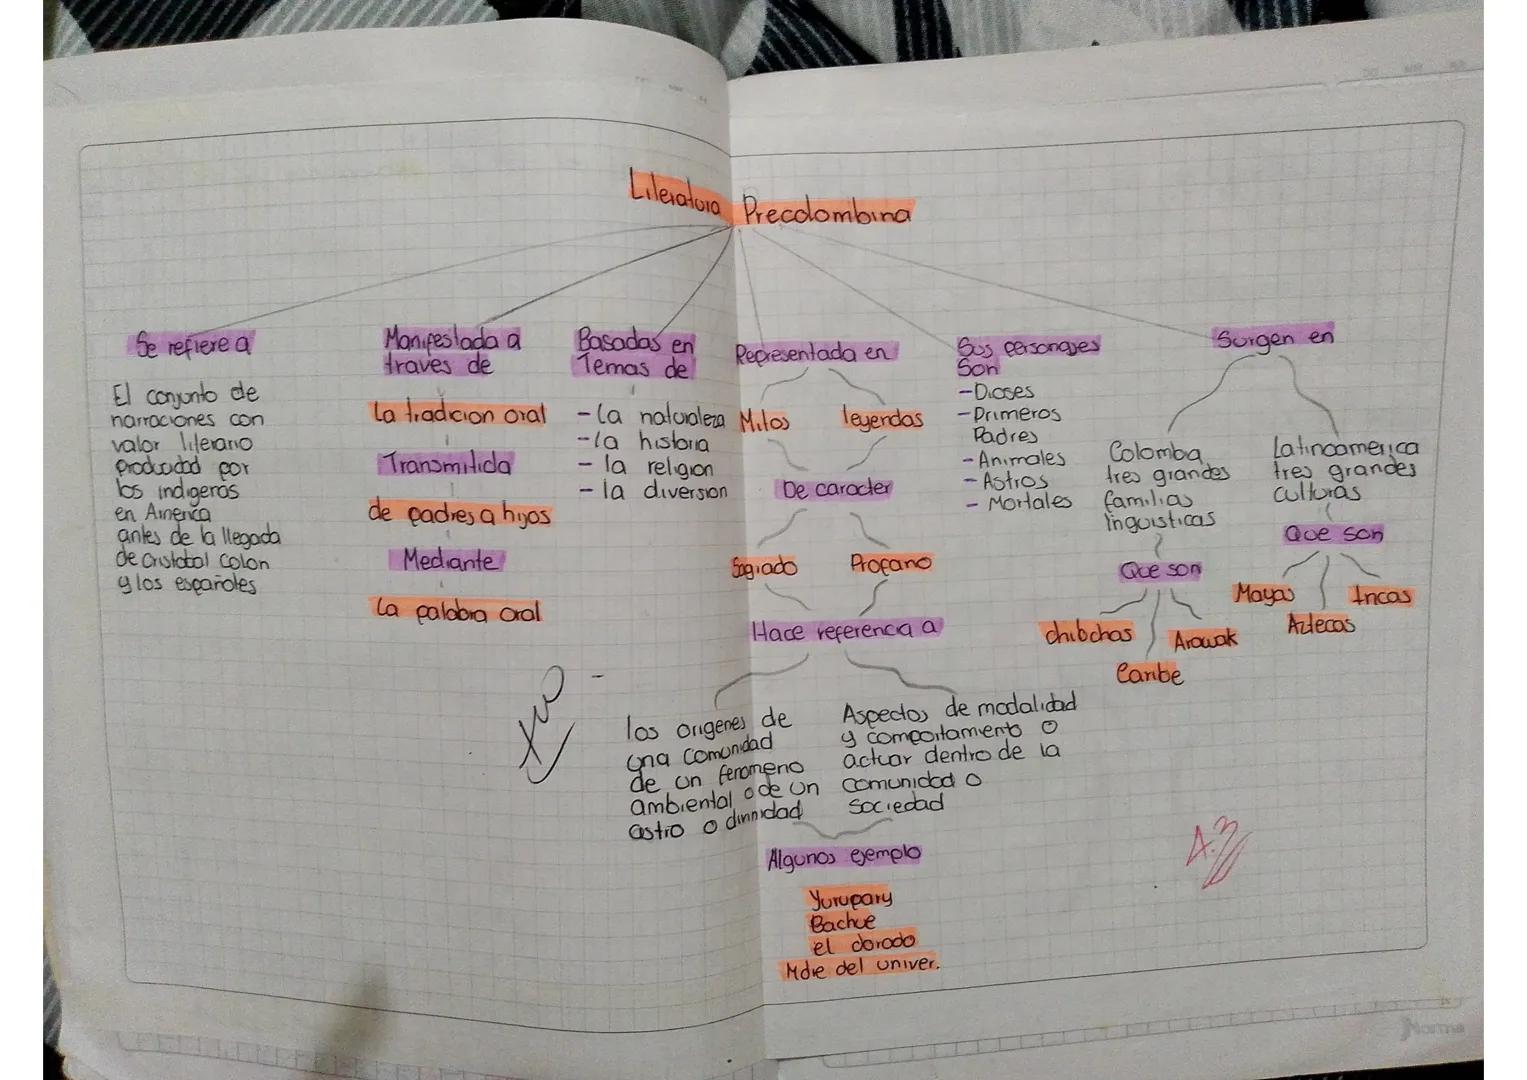 Literatura Precolombina
Se refiere a
El conjunto de
narraciones con
valor literario
producidad por
los indigenas
en America
antes de la llegada
de Cristobal Colon
y los españoles
Manifestada a
traves de
La tradicion oral
Transmitida
de padres a hijos
Mediante
La palabra oral
Basadas en
Temas de
- la naturaleza
- la historia
- la religion
- la diversion
Representada en
Mitos
leyendas
De caracter
Sagrado
Profano
Hace referencia a
los origenes de
una comunidad
de un fenomeno
ambiental o de un
astro o divinidad
Aspectos de modalidad
y comportamiento o
actuar dentro de la
comunidad o
sociedad
Algunos ejemplo
Yurupary
Bachue
el dorado
Mdre del univer.
Sus personajes
Son
- Dioses
- Primeros
Padres
- Animales
- Astros
- Mortales
Surgen en
Colombia
tres grandes
familias
linguisticas
Que son
chibchas
Caribe
Arawak
Latinoamerica
tres grandes
culturas
Que son
Mayas
Aztecas
Incas
Norma